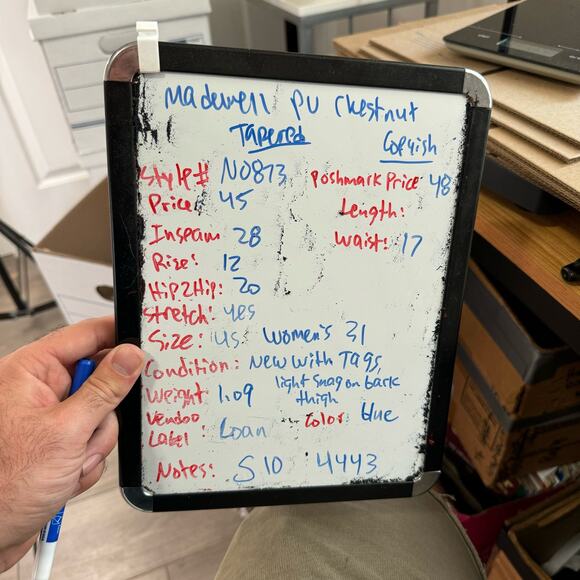 Madewell PV Chestnut
Tapered Copyish
Style# N0873 Poshmark Price 48
Price: 45 Length:
Inseam 28 Waist: 17
Rise: 12
Hip2Hip: 20
Stretch: yes
Size: US Women's 31
Condition: New with Tags,
light snag on back
thigh
Weight: 1.09
Color: blue
Vendoo
Label: Loan
Notes: S10 4443